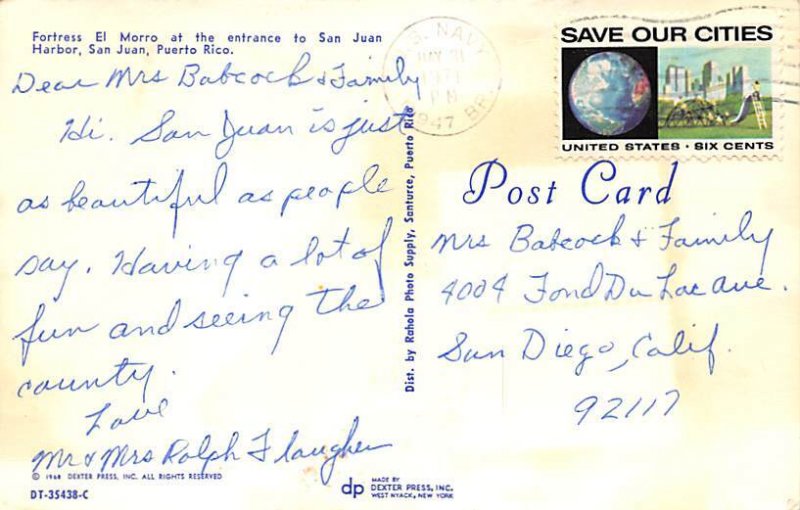 Fortress El Morro at the entrance to San Juan
Harbor, San Juan, Puerto Rico.
Dear Mrs Babcock & Family
Hi. San Juan is just
as beautiful as people
say. Having a lot of
fun and seeing the
county.
Love
Mr & Mrs Ralph Flaugher
© 1968 DEXTER PRESS, INC. ALL RIGHTS RESERVED
DT-35438-C
Dist. by Rahola Photo Supply, Santurce, Puerto Rico
dp
MADE BY
DEXTER PRESS, INC.
WEST NYACK, NEW YORK
U.S. NAVY
MAY 21
1971
PM
SAVE OUR CITIES
UNITED STATES · SIX CENTS
Post Card
Mrs Babcock & Family
4004 Fond Du Lac Ave.
San Diego, Calif.
92117